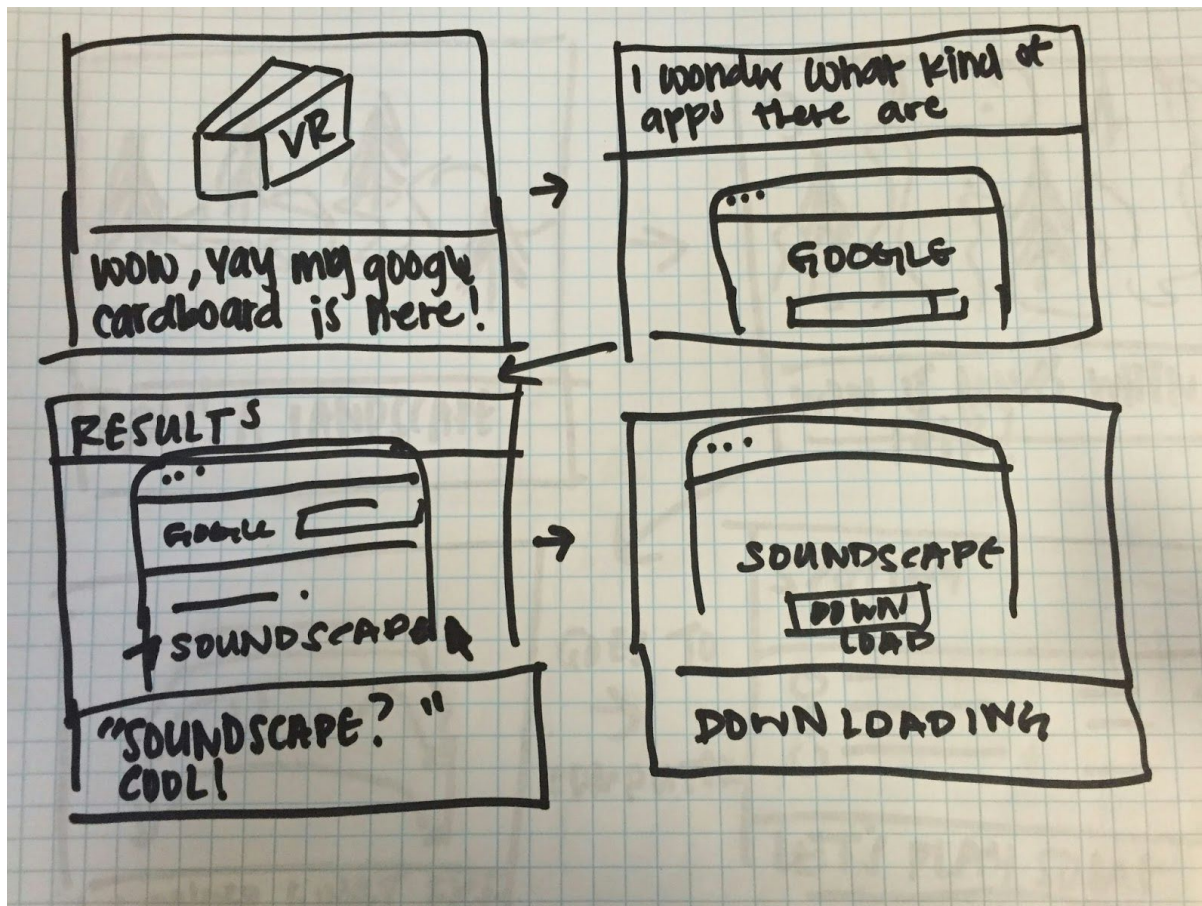 VR
wow, yay my google
cardboard is here!
I wonder what kind of
apps there are
GOOGLE
RESULTS
GOOGLE
SOUNDSCAPE
"SOUNDSCAPE?"
COOL!
SOUNDSCAPE
DOWN
LOAD
DOWNLOADING